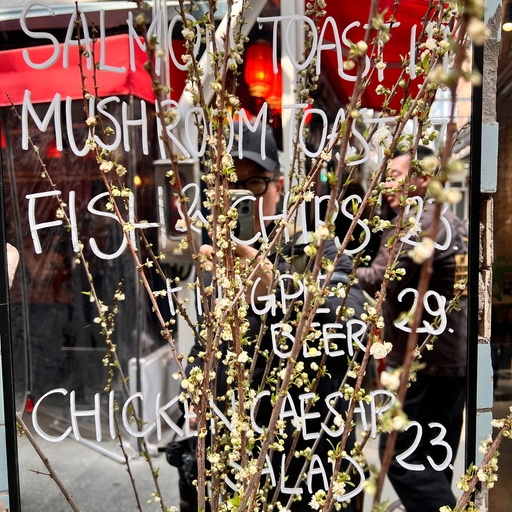 SALMON TOAST 17
MUSHROOM TOAST 17
FISH & CHIPS 23.
BEER 29.
CHICKEN CAESAR
SALAD 23.